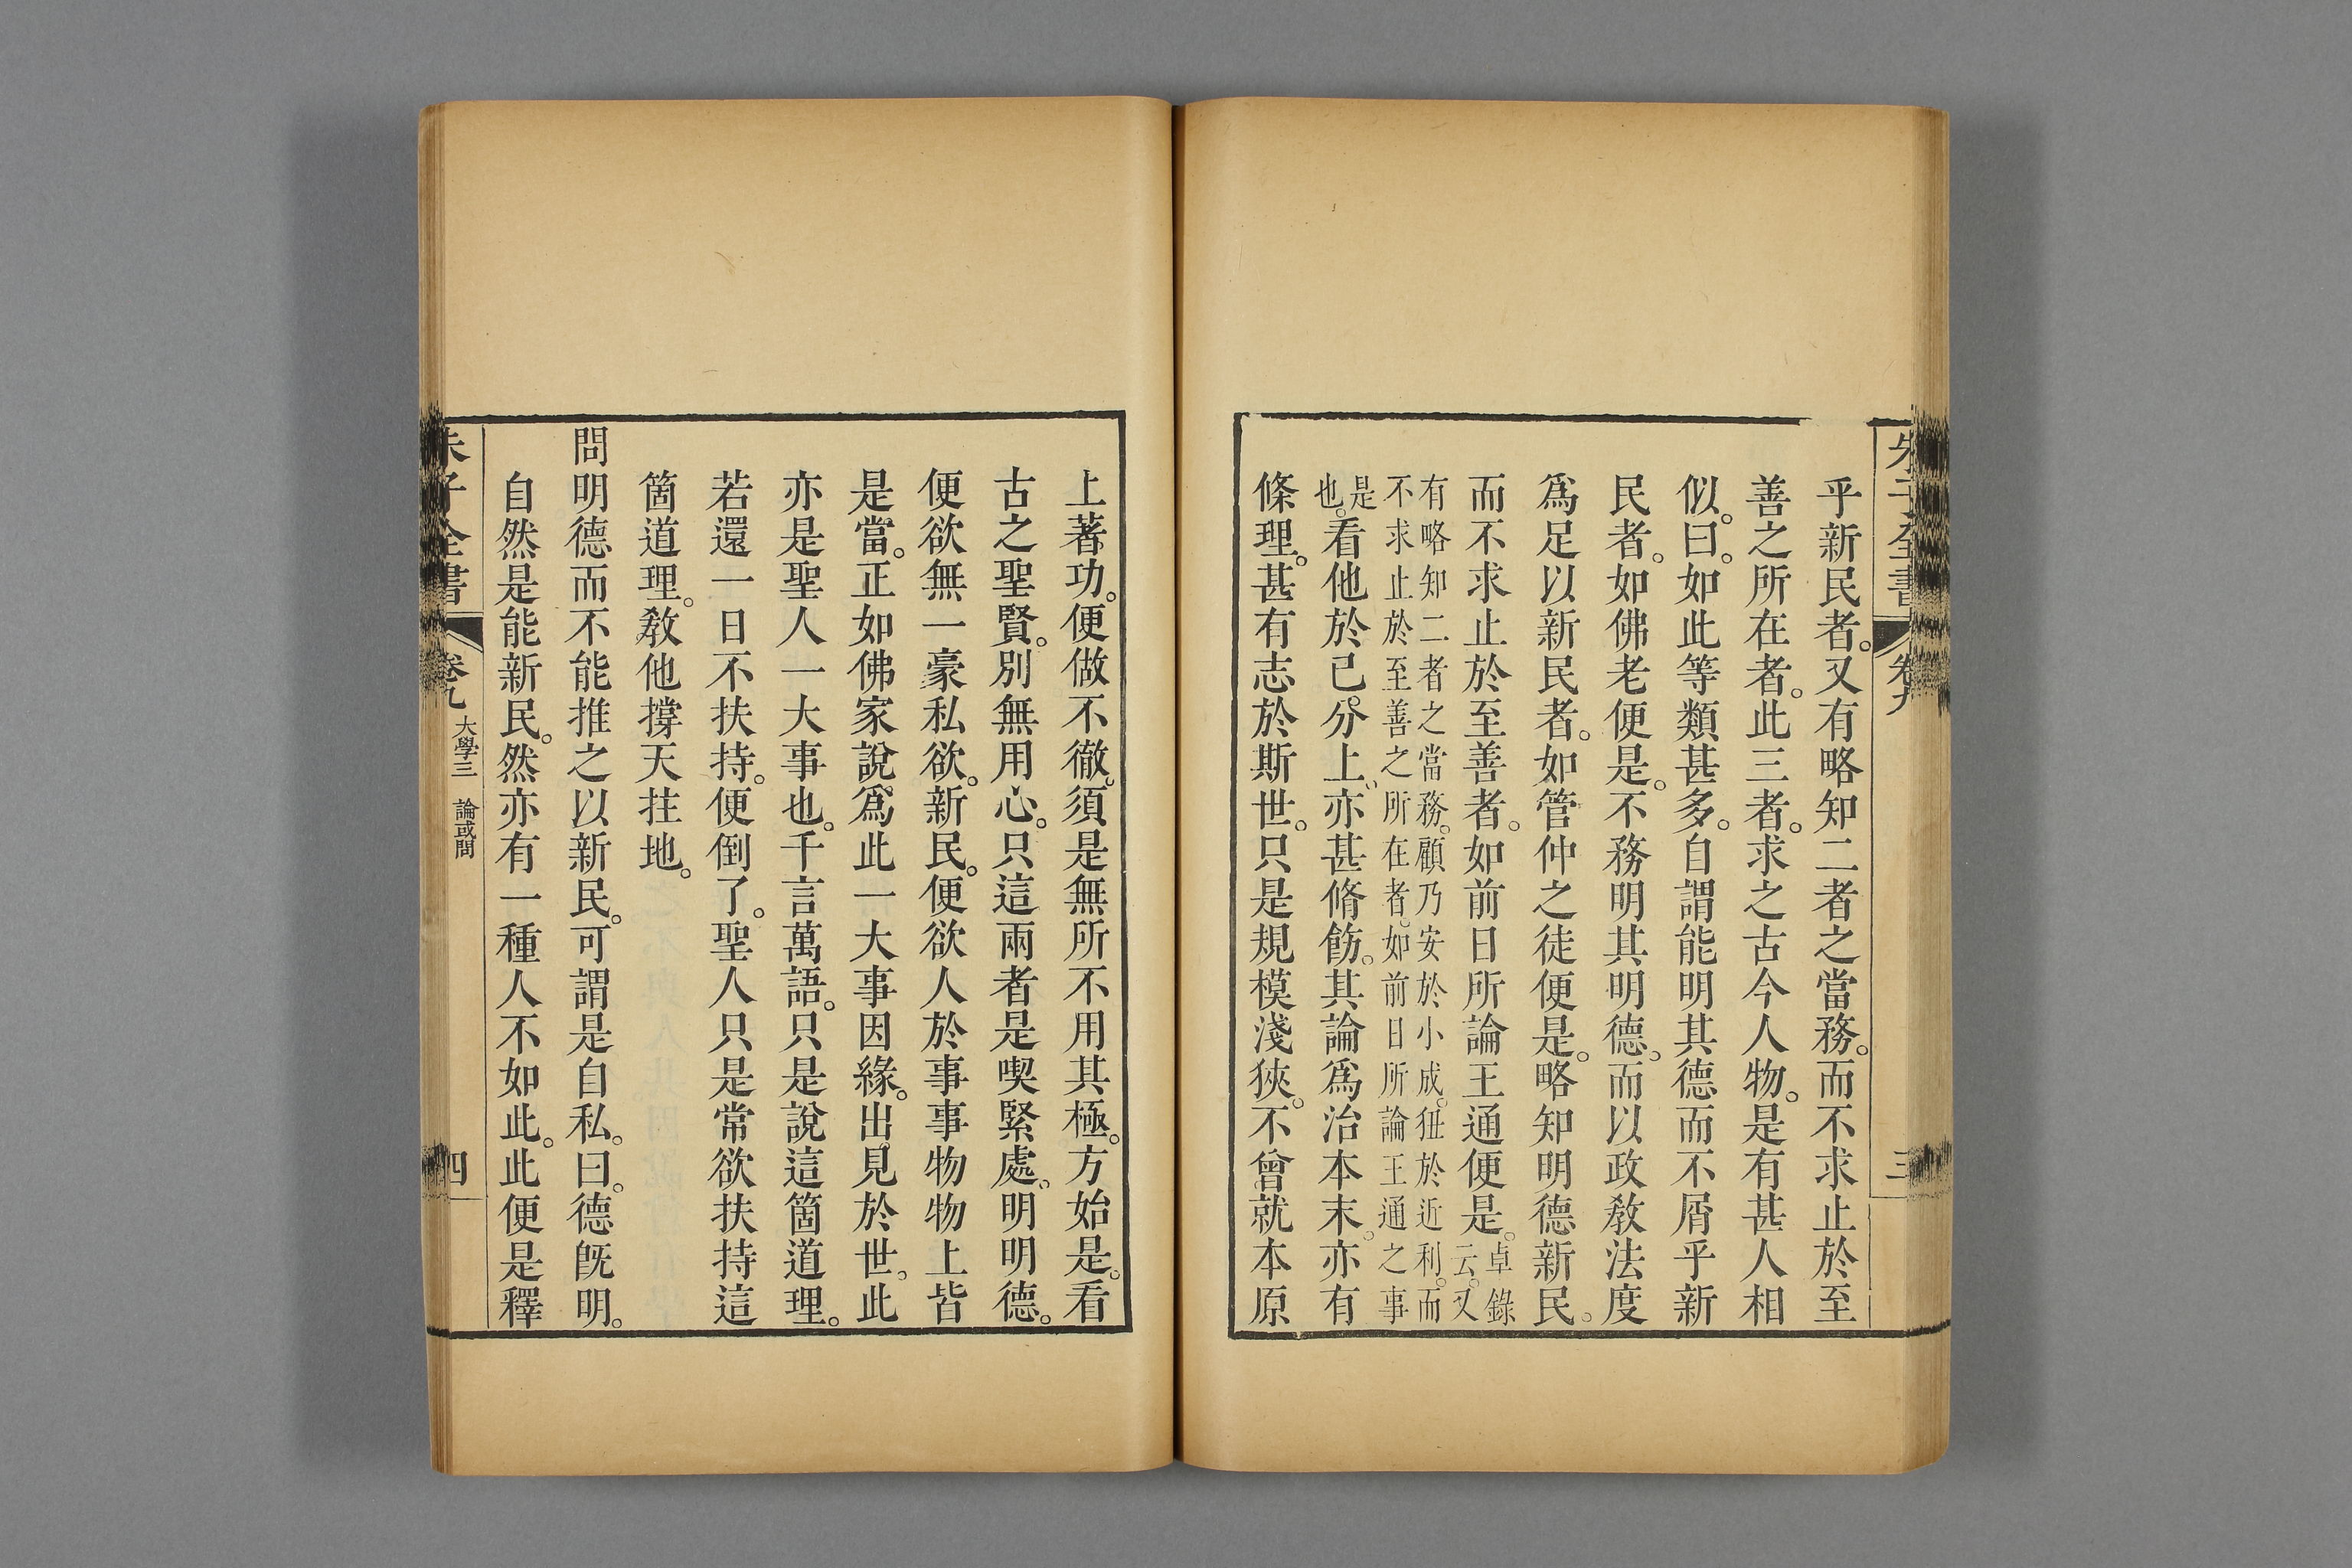 朱子全書 卷九 三
乎新民者。又有略知二者之當務。而不求止於至
善之所在者。此三者。求之古今人物。是有甚人相
似。曰。如此等類甚多。自謂能明其德而不屑乎新
民者。如佛老便是。不務明其明德。而以政敎法度
爲足以新民者。如管仲之徒便是。略知明德新民。
而不求止於至善者。如前日所論王通便是。卓錄云。又
有略知二者之當務。顧乃安於小成。狃於近利。而
不求止於至善之所在者。如前日所論王通之事
是也。看他於已分上。亦甚脩飭。其論爲治本末。亦有
條理。甚有志於斯世。只是規模淺狹。不曾就本原
上著功。便做不徹。須是無所不用其極。方始是。看
古之聖賢。別無用心。只這兩者是喫緊處。明明德。
便欲無一豪私欲。新民。便欲人於事事物物上皆
是當。正如佛家說。爲此一大事因緣。出見於世。此
亦是聖人一大事也。千言萬語。只是說這箇道理。
若還一日不扶持。便倒了。聖人只是常欲扶持這
箇道理。敎他撐天拄地。
問明德而不能推之以新民。可謂是自私。曰。德旣明。
自然是能新民。然亦有一種人不如此。此便是釋
朱子全書 卷九 大學三 論或問 四